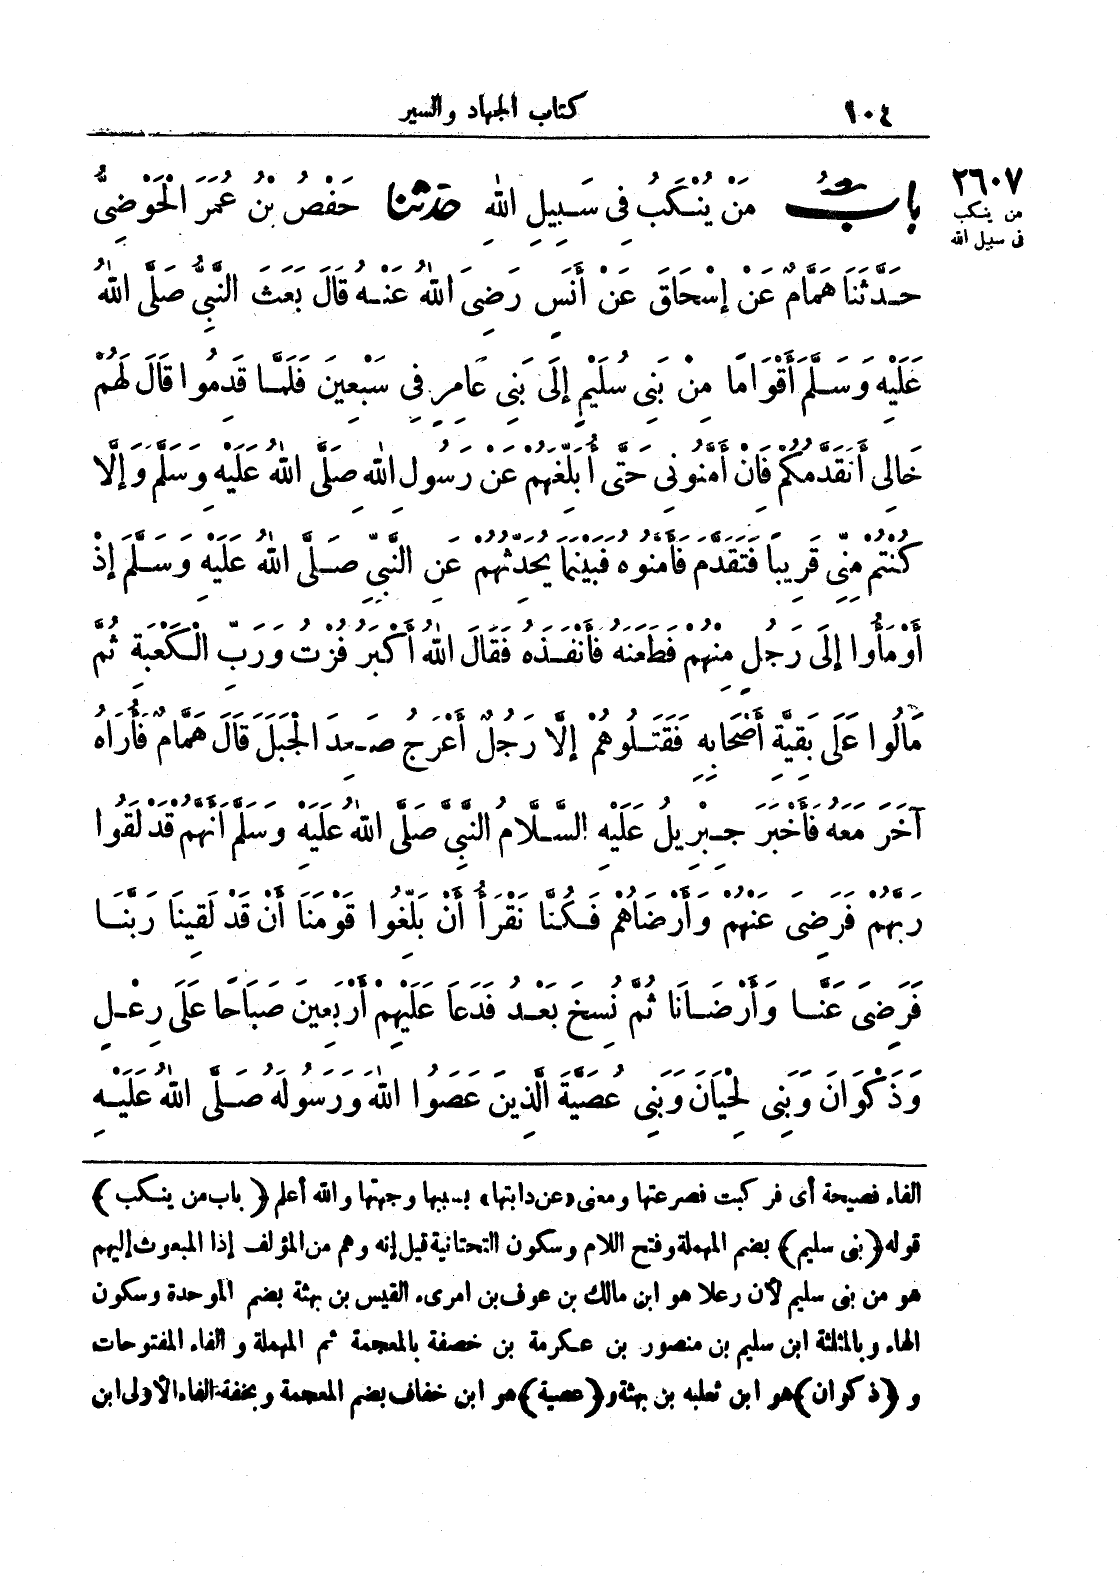 ١٠٤ كتاب الجهاد والسير
٢٦٠٧
من ينكب
فى سبيل الله
بابُ مَنْ يُنْكَبُ فِى سَبِيلِ اللهِ حدثنا حَفْصُ بْنُ عُمَرَ الْحَوْضِىُّ
حَدَّثَنَا هَمَّامٌ عَنْ إِسْحَاقَ عَنْ أَنَسٍ رَضِىَ اللهُ عَنْهُ قَالَ بَعَثَ النَّبِىُّ صَلَّى اللهُ
عَلَيْهِ وَسَلَّمَ أَقْوَامًا مِنْ بَنِى سُلَيْمٍ إِلَى بَنِى عَامِرٍ فِى سَبْعِينَ فَلَمَّا قَدِمُوا قَالَ لَهُمْ
خَالِى أَتَقَدَّمُكُمْ فَإِنْ أَمَّنُونِى حَتَّى أُبَلِّغَهُمْ عَنْ رَسُولِ اللهِ صَلَّى اللهُ عَلَيْهِ وَسَلَّمَ وَإِلَّا
كُنْتُمْ مِنِّى قَرِيبًا فَتَقَدَّمَ فَأَمَّنُوهُ فَبَيْنَمَا يُحَدِّثُهُمْ عَنِ النَّبِىِّ صَلَّى اللهُ عَلَيْهِ وَسَلَّمَ إِذْ
أَوْمَأُوا إِلَى رَجُلٍ مِنْهُمْ فَطَعَنَهُ فَأَنْفَذَهُ فَقَالَ اللهُ أَكْبَرُ فُزْتُ وَرَبِّ الْكَعْبَةِ ثُمَّ
مَالُوا عَلَى بَقِيَّةِ أَصْحَابِهِ فَقَتَلُوهُمْ إِلَّا رَجُلٌ أَعْرَجُ صَعِدَ الْجَبَلَ قَالَ هَمَّامٌ فَأُرَاهُ
آخَرَ مَعَهُ فَأَخْبَرَ جِبْرِيلُ عَلَيْهِ السَّلَامُ النَّبِىَّ صَلَّى اللهُ عَلَيْهِ وَسَلَّمَ أَنَّهُمْ قَدْ لَقُوا
رَبَّهُمْ فَرَضِىَ عَنْهُمْ وَأَرْضَاهُمْ فَكُنَّا نَقْرَأُ أَنْ بَلِّغُوا قَوْمَنَا أَنْ قَدْ لَقِينَا رَبَّنَا
فَرَضِىَ عَنَّا وَأَرْضَانَا ثُمَّ نُسِخَ بَعْدُ فَدَعَا عَلَيْهِمْ أَرْبَعِينَ صَبَاحًا عَلَى رِعْلٍ
وَذَكْوَانَ وَبَنِى لِحْيَانَ وَبَنِى عُصَيَّةَ الَّذِينَ عَصَوُا اللهَ وَرَسُولَهُ صَلَّى اللهُ عَلَيْهِ
الفاء فصيحة أى فركبت فصرعتها ومعنى «عن دابتها» بسببها وجهتها والله أعلم (باب من ينكب)
قوله (بنى سليم) بضم المهملة وفتح اللام وسكون التحتانية قيل إنه وهم من المؤلف إذا المبعوث إليهم
هو من بنى سليم لأن رعلا هو ابن مالك بن عوف بن امرىء القيس بن بهثة بضم الموحدة وسكون
الهاء وبالمثلثة ابن سليم بن منصور بن عكرمة بن خصفة بالمعجمة ثم المهملة و الفاء المفتوحات
و (ذكوان) هو ابن ثعلبه بن بهثة و (عصية) هو ابن خفاف بضم المعجمة وبخفة الفاء الأولى ابن